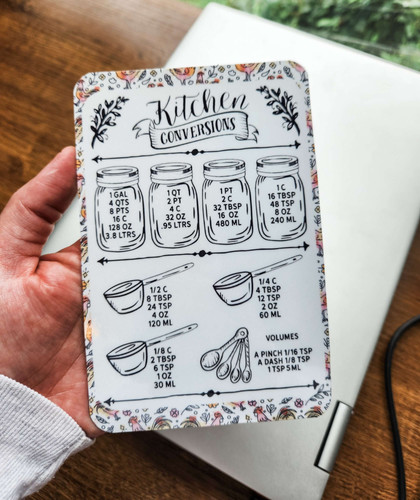 Kitchen
CONVERSIONS
1 GAL
4 QTS
8 PTS
16 C
128 OZ
3.8 LTRS
1 QT
2 PT
4 C
32 OZ
.95 LTRS
1 PT
2 C
32 TBSP
16 OZ
480 ML
1 C
16 TBSP
48 TSP
8 OZ
240 ML
1/2 C
8 TBSP
24 TSP
4 OZ
120 ML
1/4 C
4 TBSP
12 TSP
2 OZ
60 ML
1/8 C
2 TBSP
6 TSP
1 OZ
30 ML
VOLUMES
A PINCH 1/16 TSP
A DASH 1/8 TSP
1 TSP 5ML